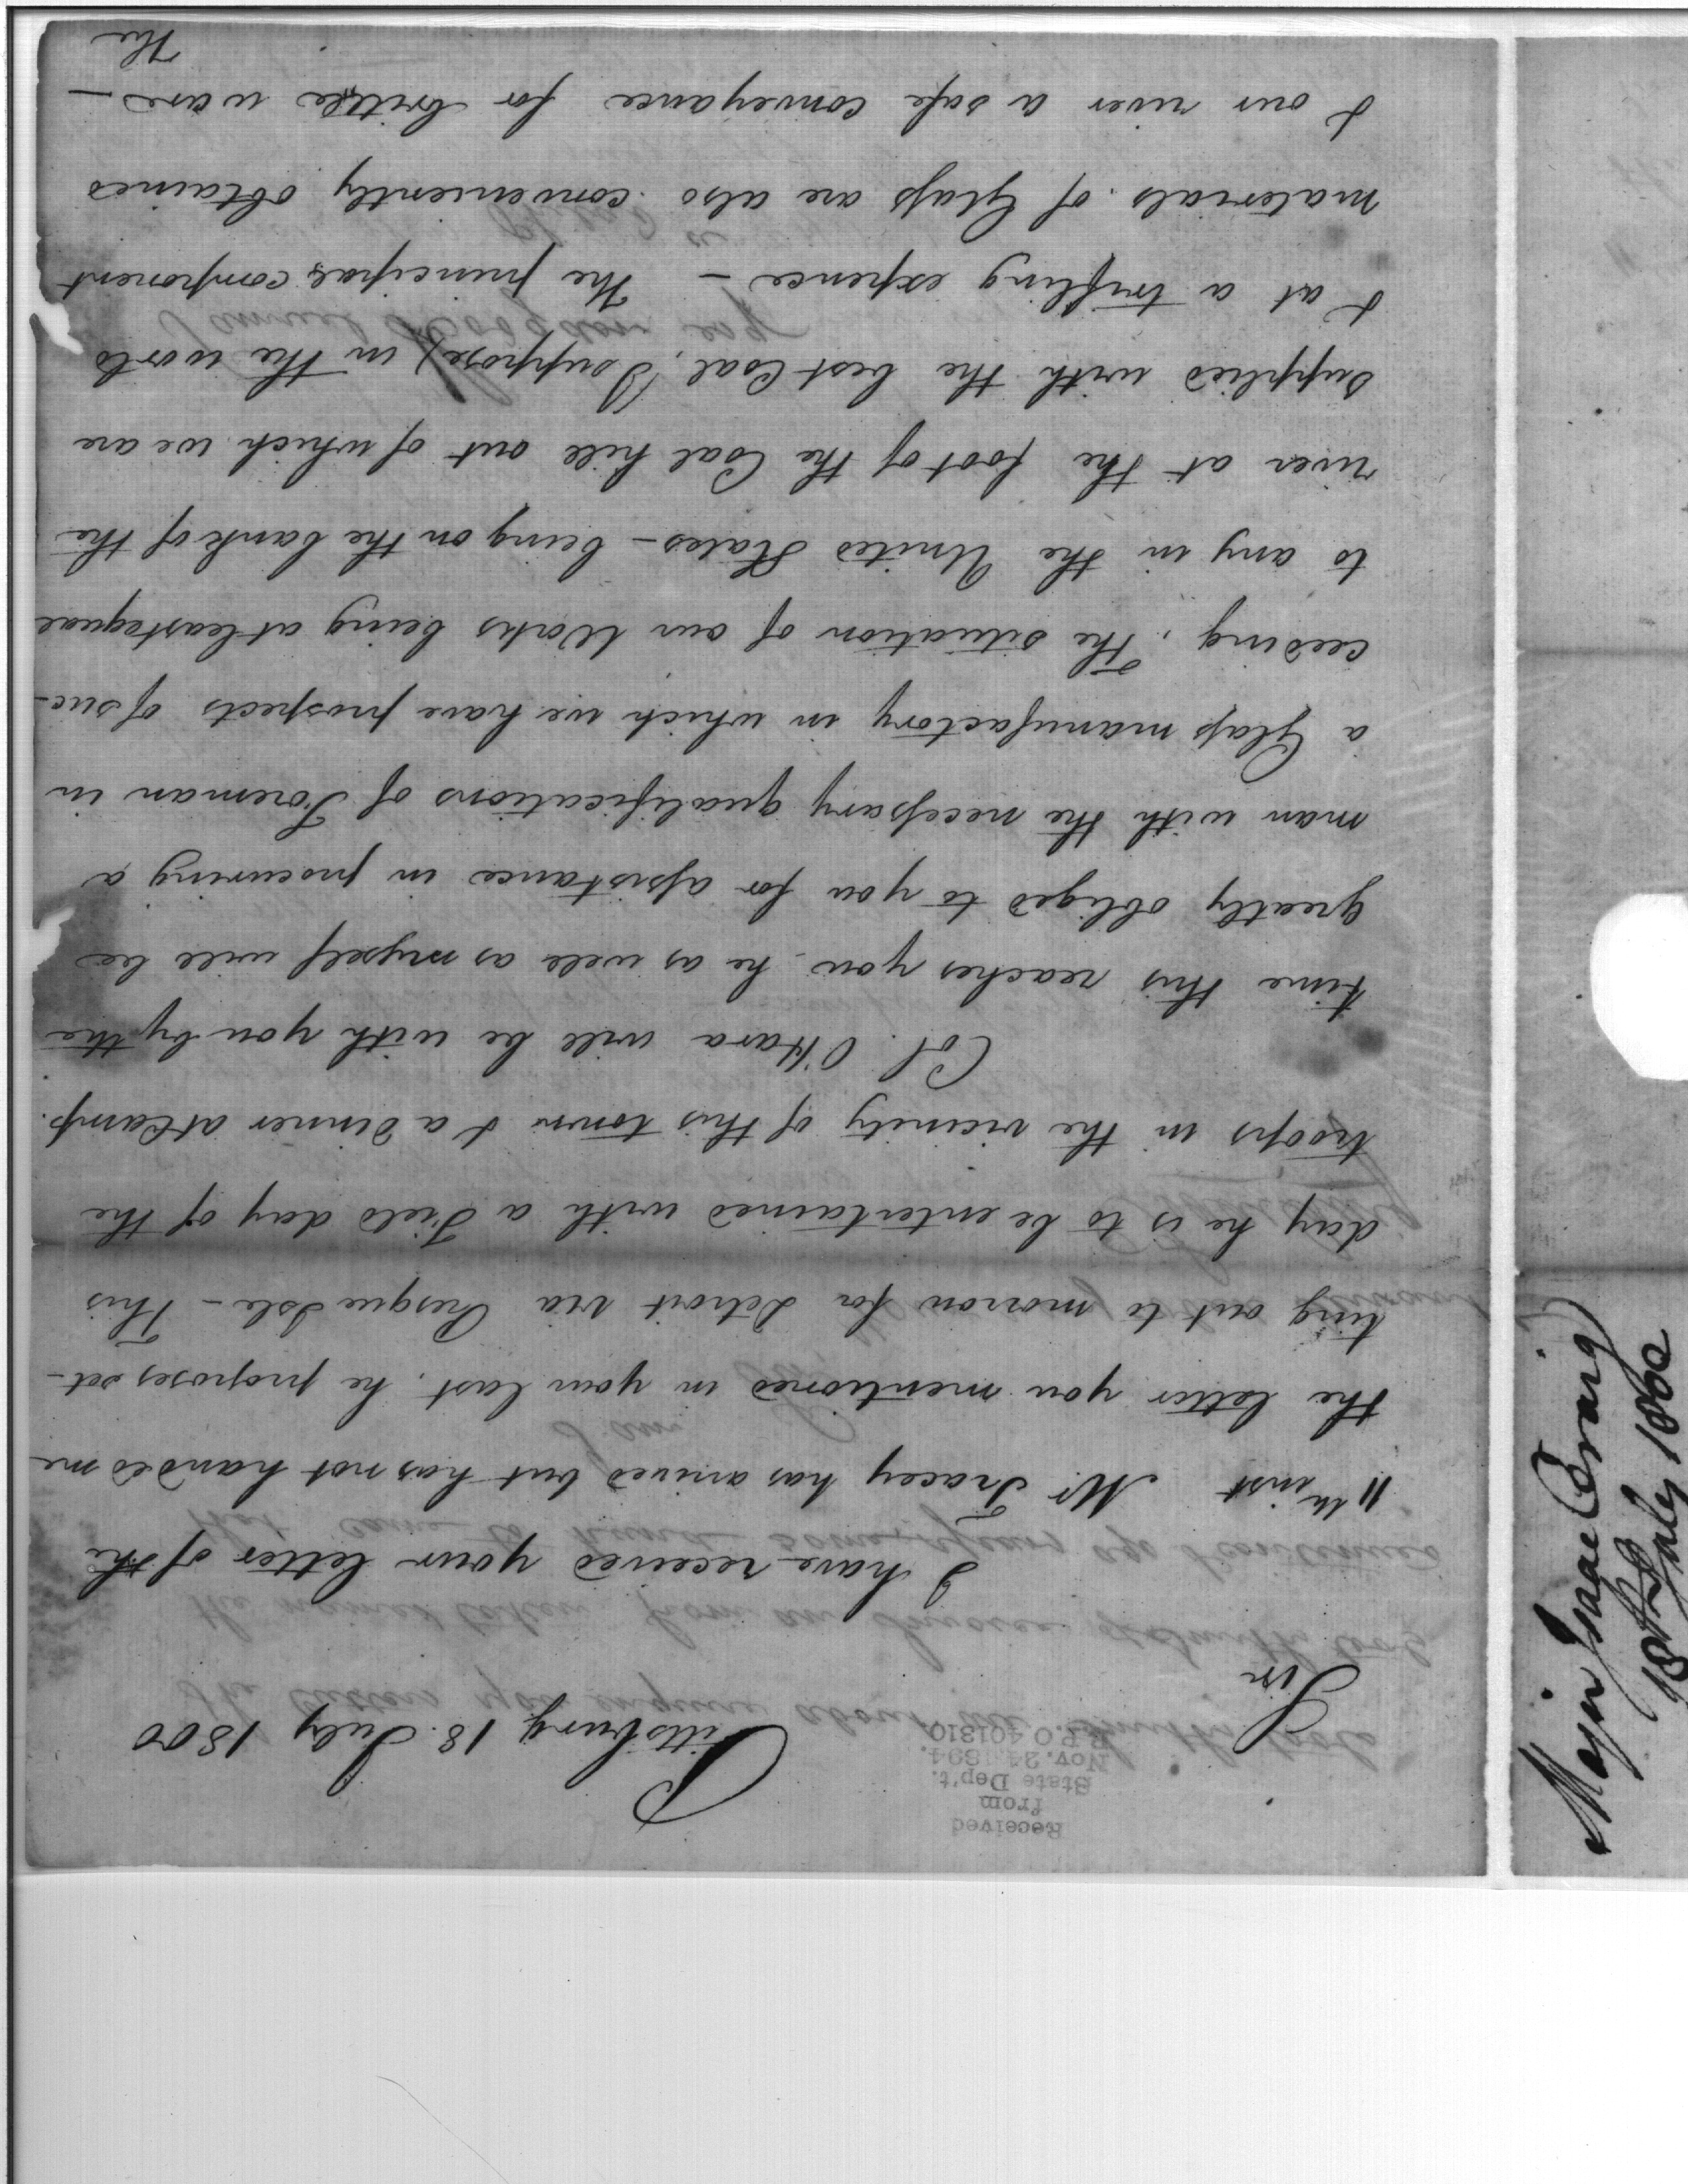 Received
from
State Dep't.
Nov. 24. 1894.
R.P.O. 401310
Pittsburg 18. July 1800
Sir
I have received your letter of the
11th inst Mr. Tracey has arrived but has not handed me
the letter you mentioned in your last. he proposes set-
ting out to morrow for Detroit via Presque Isle - This
day he is to be entertained with a Field day of the
troops in the vicinity of this town & a dinner at Camp.
Col. O'Hara will be with you by the
time this reaches you he as well as myself will be
greatly obliged to you for assistance in procuring a
man with the necessary qualifications of Foreman in
a Glass manufactory in which we have prospects of suc-
ceeding, The situation of our Works being at least equal
to any in the United States - being on the bank of the
river at the foot of the Coal hill out of which we are
supplied with the best Coal, (I suppose) in the world
& at a trifling expence - The principal component
materials of Glass are also conveniently obtained
& our river a safe conveyance for brittle ware -
The
Major Isaac Craig
18th July 1800